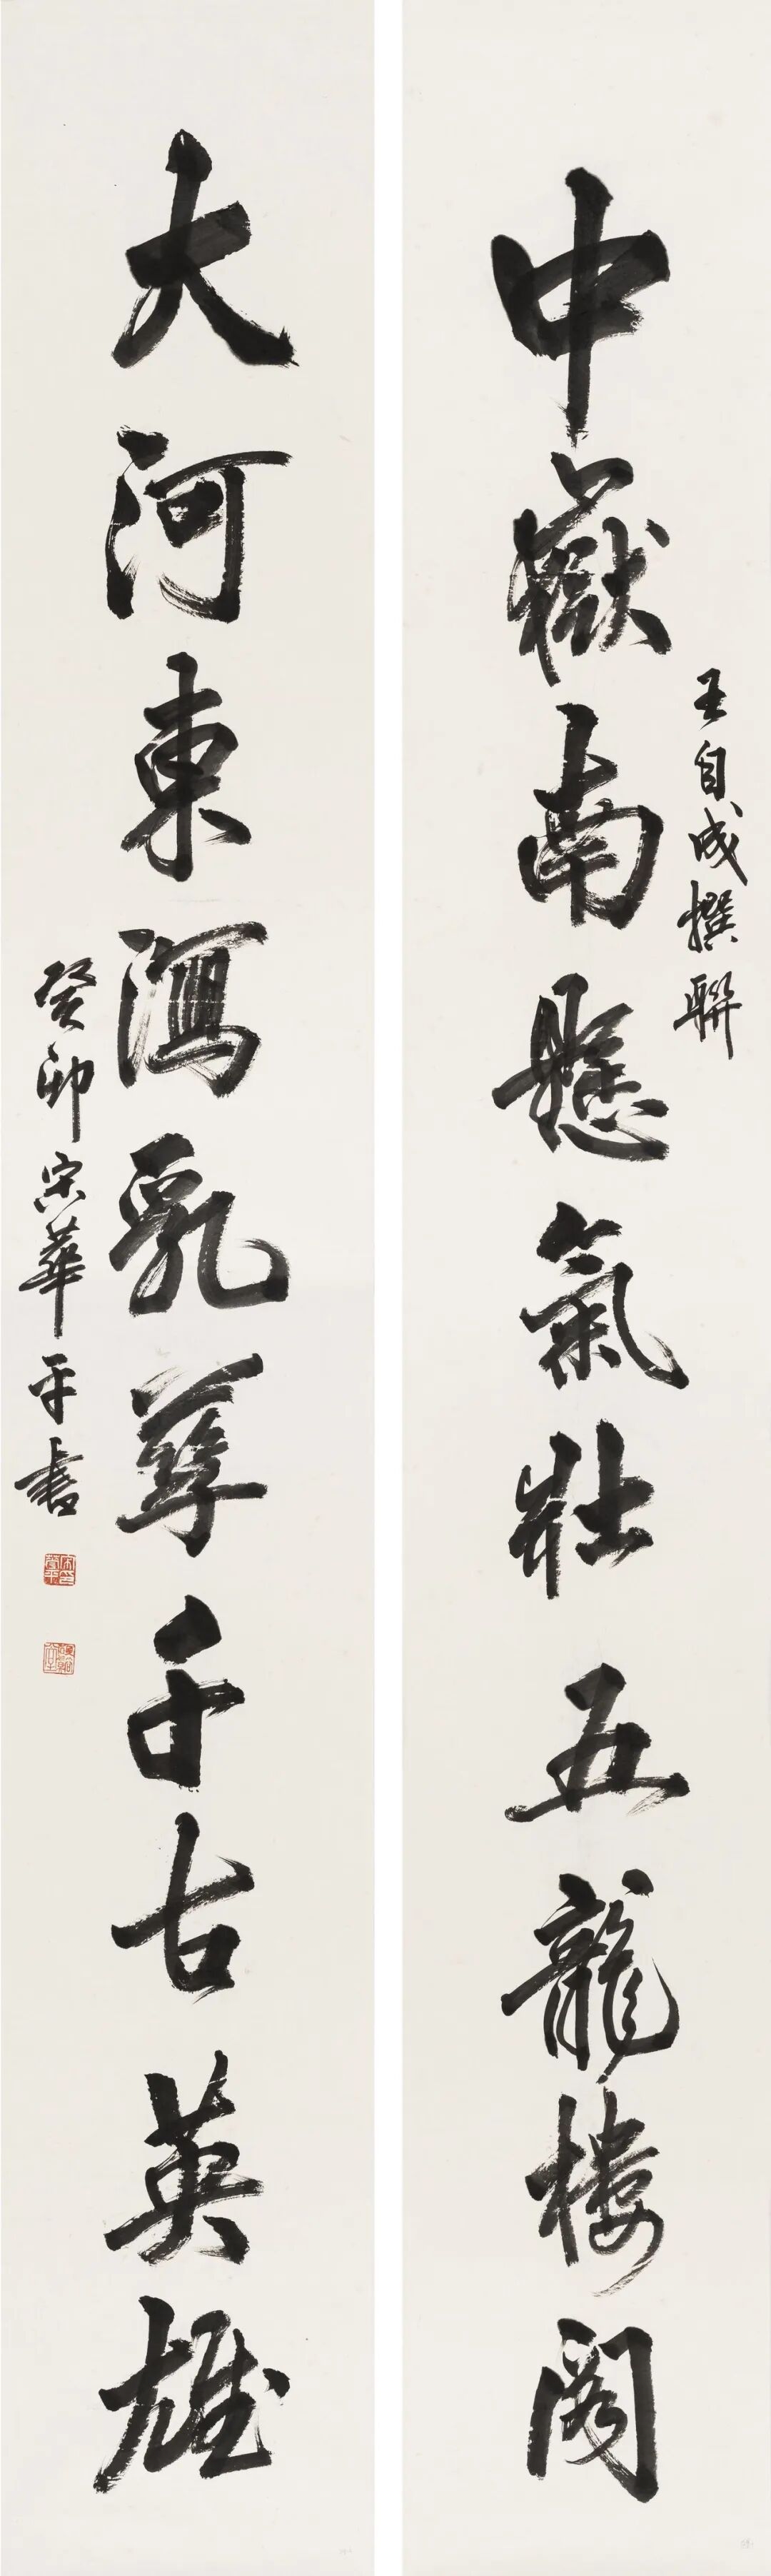 中嶽南懸氣壯五龍樓閣
王自成撰聯
大河東瀉乳孳千古英雄
癸卯宋華平書